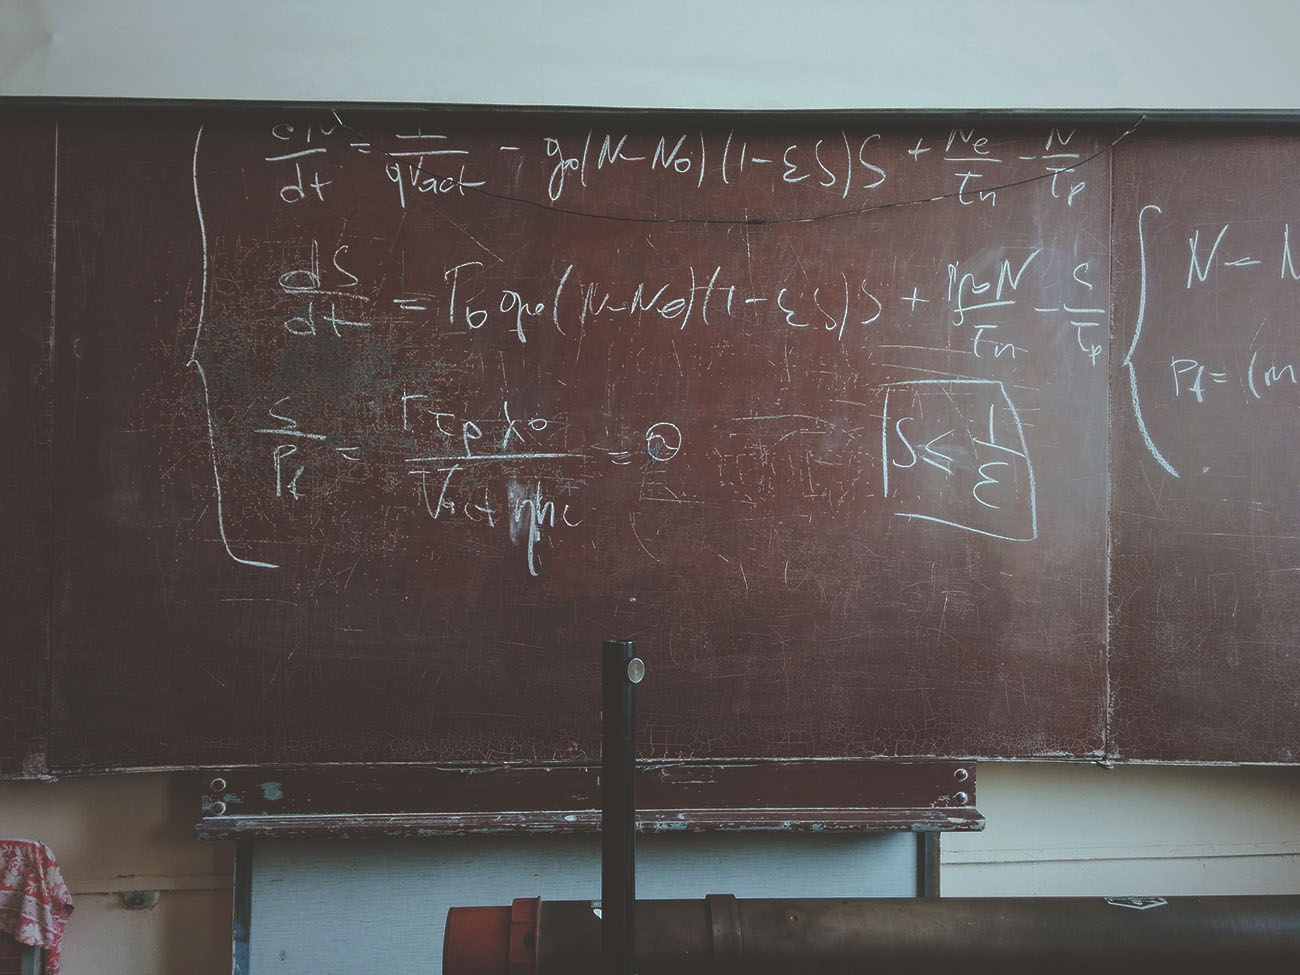 dN/dt = I/qVact - g₀(N-N₀)(1-εS)S + Nₑ/τₙ - N/τₚ
dS/dt = Γ₀g₀(N-N₀)(1-εS)S + N/τₙ - S/τₚ
S/Pf = Γτₚλ₀/Vactηhc = ②
S ≤ 1/ε
N - N
Pf = (m